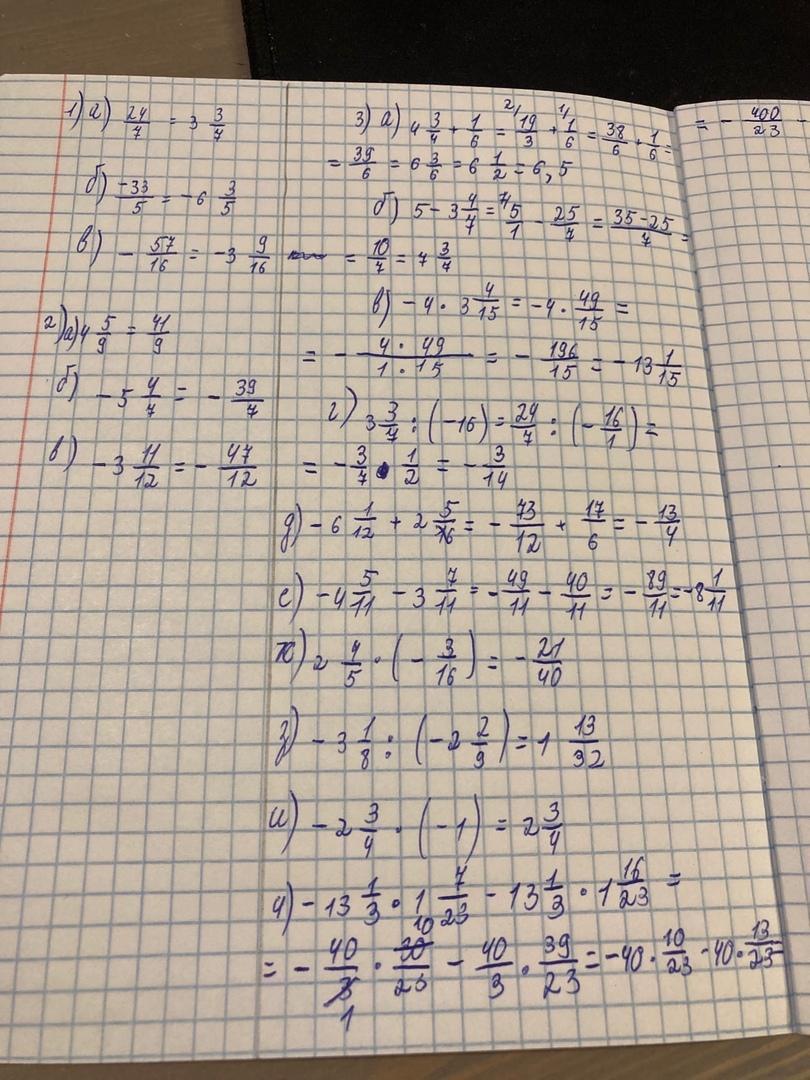 1) а) 24/7 = 3 3/7
б) -33/5 = -6 3/5
в) - 57/16 = -3 9/16
2) а) 4 5/9 = 41/9
б) -5 4/7 = - 39/7
в) -3 11/12 = - 47/12
3) а) 4 3/4 + 1/6 = 2/ 19/3 + 1/ 1/6 = 38/6 + 1/6 =
= 39/6 = 6 3/6 = 6 1/2 = 6,5
б) 5 - 3 4/7 = 7/ 5/1 - 25/7 = 35-25/7 =
= 10/7 = 7 3/7
в) -4 · 3 4/15 = -4 · 49/15 =
= - 4 · 49/1 · 15 = - 196/15 = -13 1/15
г) 3 3/7 : (-16) = 24/7 : (- 16/1) =
= - 3/7 · 1/2 = - 3/14
д) -6 1/12 + 2 5/6 = - 73/12 + 17/6 = - 13/4
е) -4 5/11 - 3 7/11 = - 49/11 - 40/11 = - 89/11 = -8 1/11
ж) 2 4/5 · (- 3/16) = - 21/40
з) -3 1/8 : (-2 2/9) = 1 13/32
и) -2 3/4 · (-1) = 2 3/4
4) -13 1/3 · 1 7/23 - 13 1/3 · 1 16/23 =
= - 40/3 1 · 10 30/23 - 40/3 · 39/23 = -40 · 10/23 - 40 · 13/23
= - 400/23 -